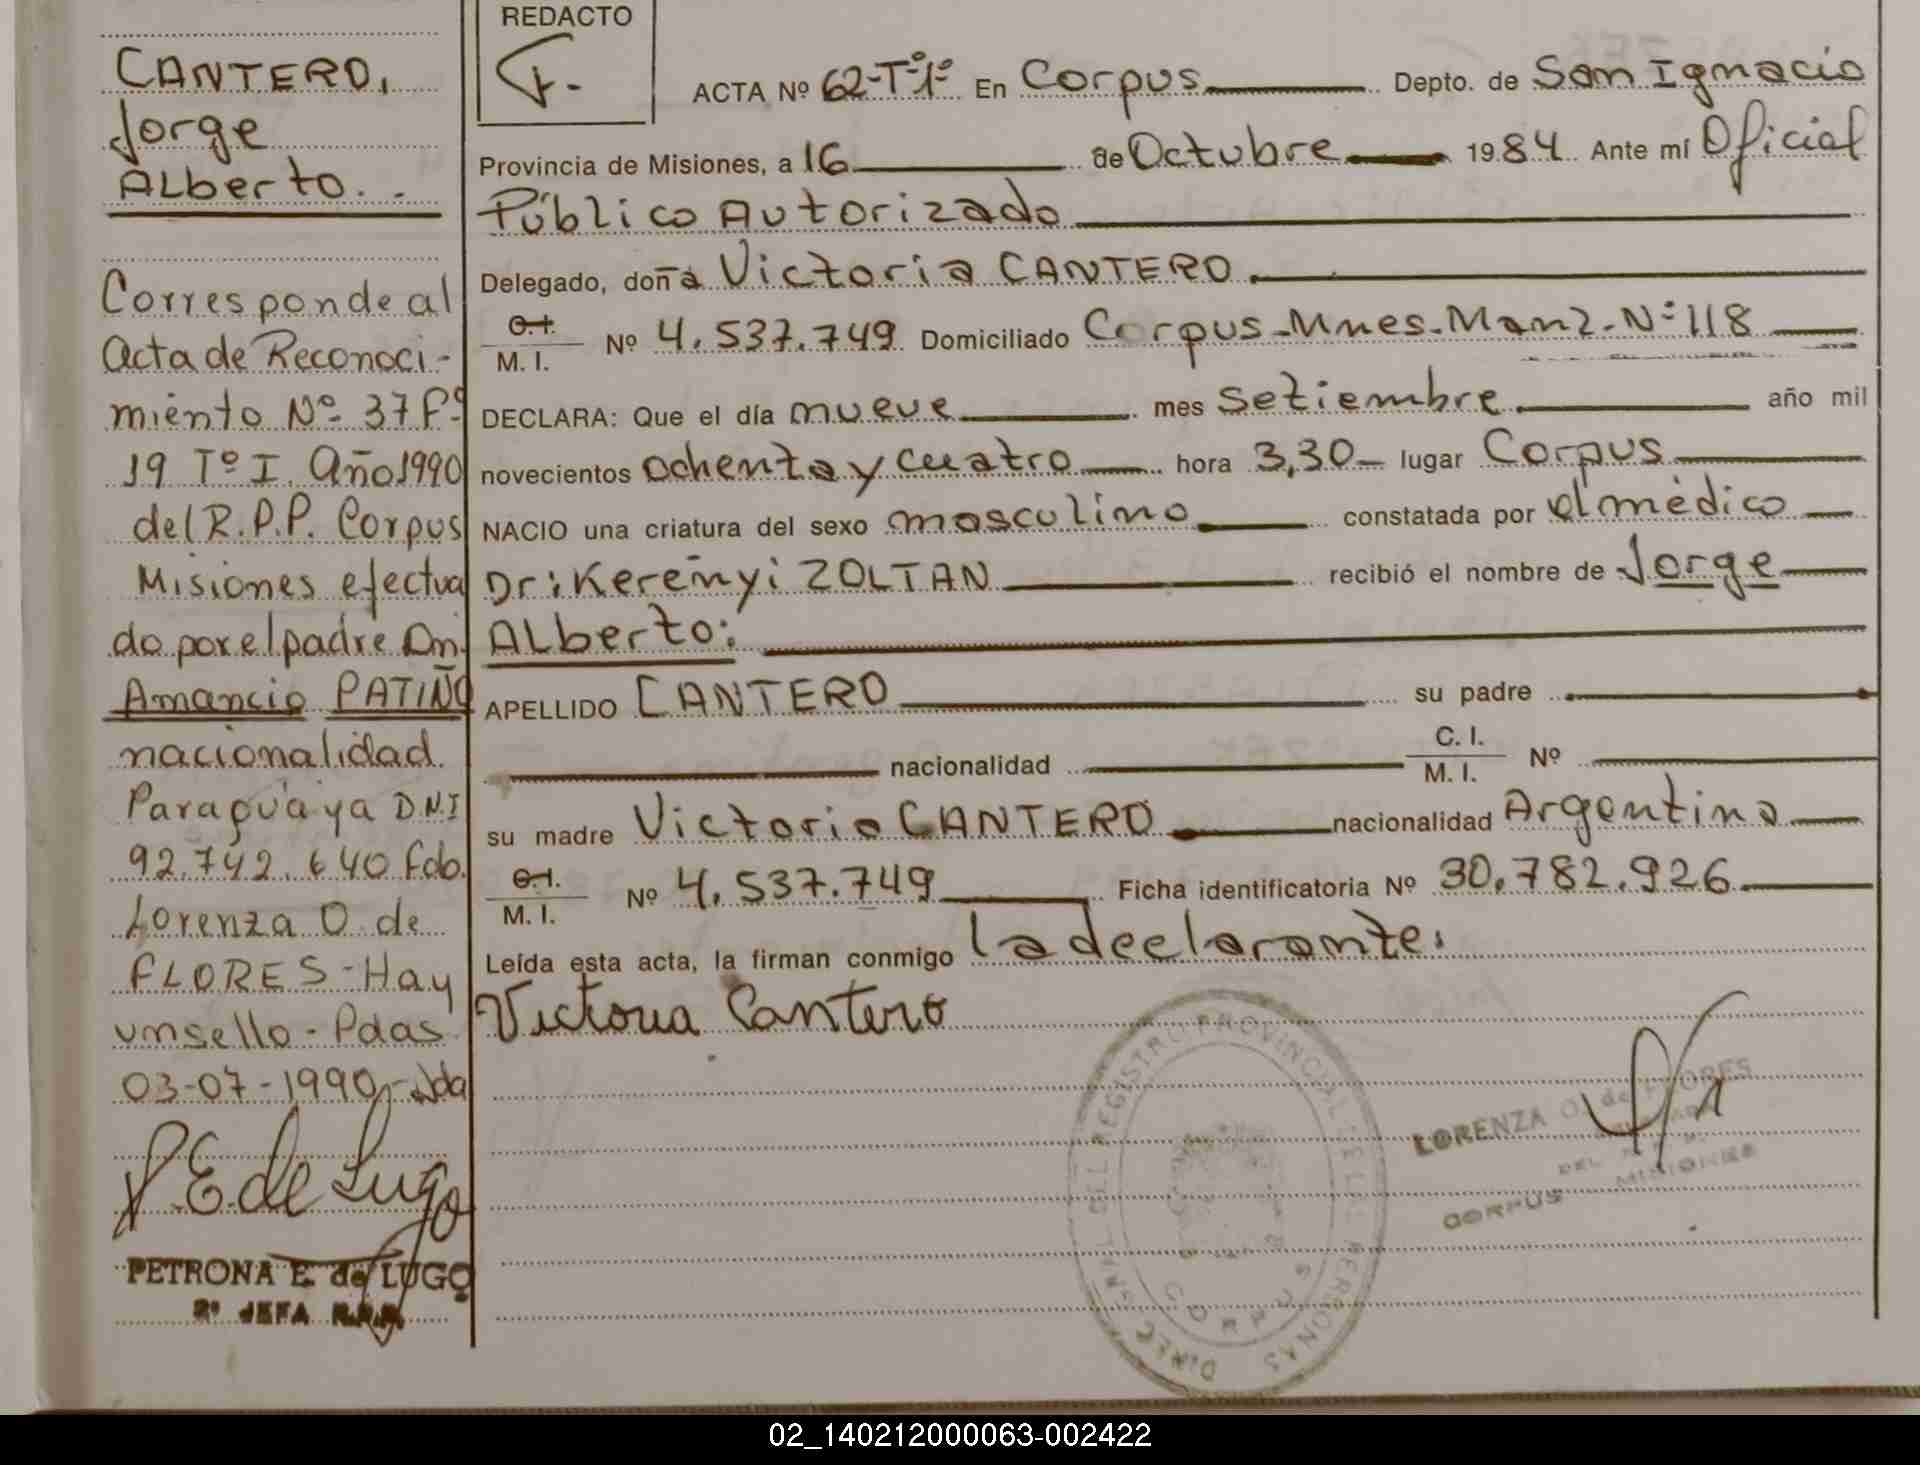 CANTERO,
Jorge
ALberto. -
Corresponde al
Acta de Reconoci-
miento Nº 37 Fº
19 Tº I. Año 1990
del R.P.P. Corpus
Misiones efectua
do por el padre Dn.
Amancio PATIÑO
nacionalidad
Paraguaya D.N.I
92.742.640 fdo.
Lorenza O. de
FLORES - Hay
un sello - Pdas
03-07-1990
P. E. de Lugo
PETRONA E. de LUGO
2º JEFA R.P.P.
REDACTO
ACTA Nº 62-Tº1º En Corpus Depto. de San Ignacio
Provincia de Misiones, a 16 de Octubre 1984 Ante mí Oficial
Público Autorizado
Delegado, doña Victoria CANTERO
C.I.
M. I. Nº 4.537.749 Domiciliado Corpus-Mnes-Manz-Nº 118
DECLARA: Que el día nueve mes setiembre año mil
novecientos ochenta y cuatro hora 3,30 lugar Corpus
NACIO una criatura del sexo masculino constatada por el médico
Dr: Kereñyi ZOLTAN recibió el nombre de Jorge
ALberto:
APELLIDO CANTERO su padre
nacionalidad C. I.
M. I. Nº
su madre Victoria CANTERO nacionalidad Argentina
C.I.
M. I. Nº 4.537.749 Ficha identificatoria Nº 30.782.926
Leída esta acta, la firman conmigo la declarante.
Victoria Cantero
DIREC GRAL DEL REGISTRO PROVINCIAL DE LAS PERSONAS
CORPUS
LORENZA O. de FLORES
DEL
CORPUS MISIONES
02_140212000063-002422